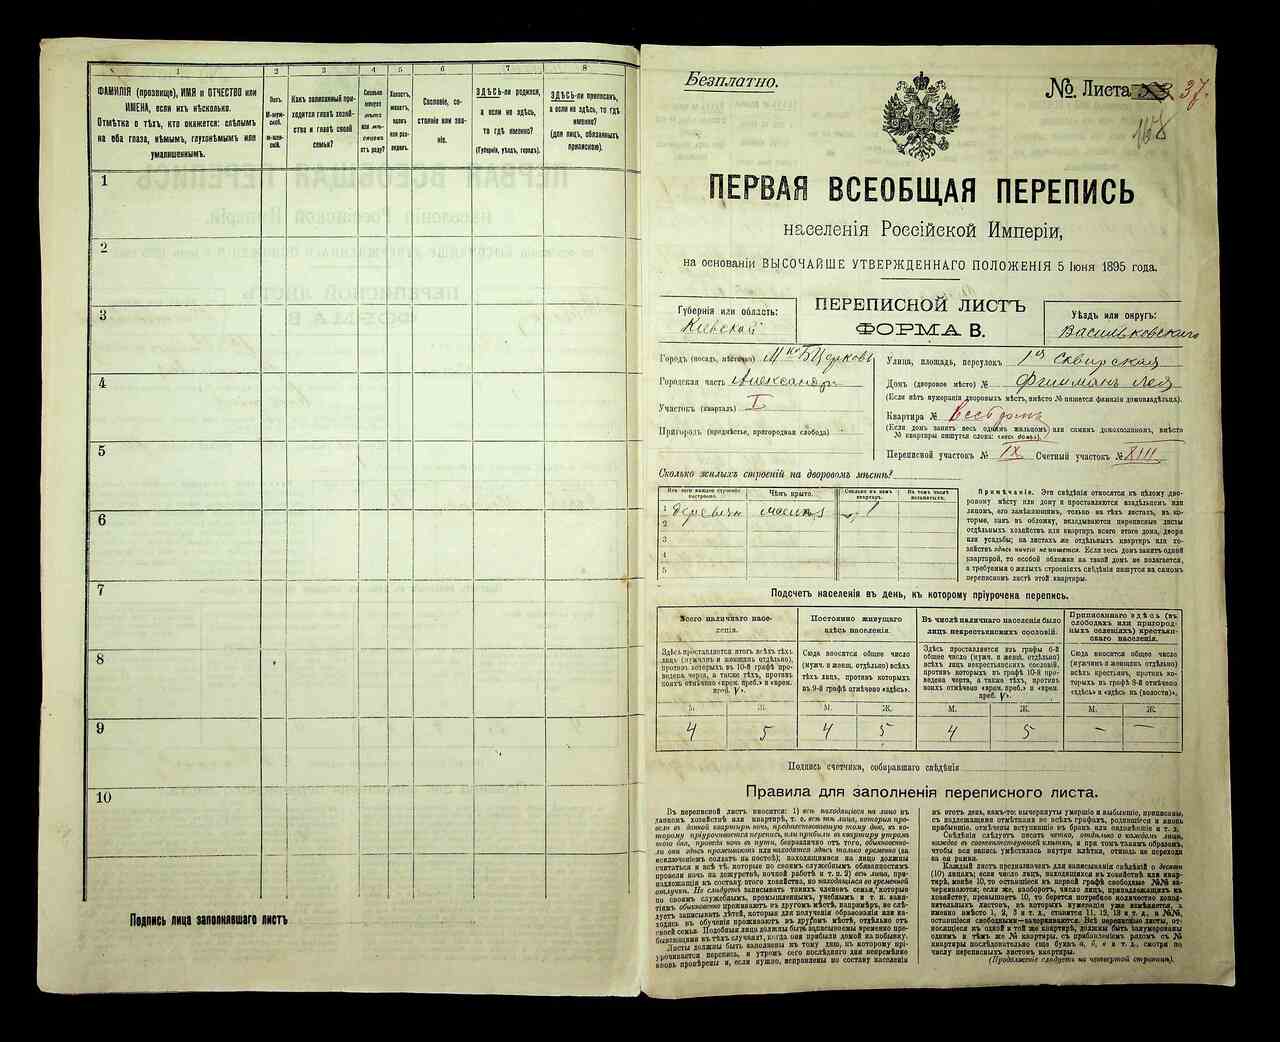 1 2 3 4 5 6 7 8
ФАМИЛІЯ (прозвище), ИМЯ и ОТЧЕСТВО или
ИМЕНА, если ихъ нѣсколько.
Отмѣтка о тѣхъ, кто окажется: слѣпымъ
на оба глаза, нѣмымъ, глухонѣмымъ или
умалишеннымъ.
Полъ.
М-муж-
ской.
Ж-жен-
скій.
Какъ записанный при-
ходится главѣ хозяй-
ства и главѣ своей
семьи?
Сколько
минуло
лѣтъ
или мѣ-
сяцевъ
отъ роду?
Холостъ,
женатъ,
вдовъ
или раз-
веденъ.
Сословіе, со-
стояніе или зва-
ніе.
ЗДѢСЬ-ли родился,
а если не здѣсь,
то гдѣ именно?
(Губернія, уѣздъ, городъ).
ЗДѢСЬ-ли приписанъ,
а если не здѣсь, то гдѣ
именно?
(для лицъ, обязанныхъ
припискою).
1
2
3
4
5
6
7
8
9
10
Подпись лица заполнявшаго листъ
Безплатно.
№ Листа 37.
168
ПЕРВАЯ ВСЕОБЩАЯ ПЕРЕПИСЬ
населенія Россійской Имперіи,
на основаніи ВЫСОЧАЙШЕ УТВЕРЖДЕННАГО ПОЛОЖЕНІЯ 5 Іюня 1895 года.
Губернія или область:
Кіевской
ПЕРЕПИСНОЙ ЛИСТЪ
ФОРМА В.
Уѣздъ или округъ:
Васильковскаго
Городъ (посадъ, мѣстечко) М-ко Б Церковь
Городская часть Александр
Участокъ (кварталъ) I
Пригородъ (предмѣстье, пригородная слобода)
Улица, площадь, переулокъ 1я Сквирская
Домъ (дворовое мѣсто) №
(Если нѣтъ нумераціи дворовыхъ мѣстъ, вмѣсто № пишется фамилія домовладѣльца).
Квартира № весь домъ
(Если домъ занятъ весь однимъ жильцомъ или самимъ домохозяиномъ, вмѣсто
№ квартиры пишутся слова: «весь домъ»).
Переписной участокъ № IX Счетный участокъ № XIII
Сколько жилыхъ строеній на дворовомъ мѣстѣ?
Изъ чего каждое строеніе
построено.
Чѣмъ крыто.
Сколько въ немъ
квартиръ.
Въ томъ числѣ
незанятыхъ.
1 деревян 1
2
3
4
5
Примѣчаніе. Эти свѣдѣнія относятся къ цѣлому дво-
ровому мѣсту или дому и проставляются владѣльцемъ или
лицомъ, его замѣняющимъ, только на тѣхъ листахъ, въ ко-
торые, какъ въ обложку, вкладываются переписные листы
отдѣльныхъ хозяйствъ или квартиръ всего этого дома, двора
или усадьбы; на листахъ же отдѣльныхъ квартиръ или хо-
зяйствъ здѣсь ничего не пишется. Если весь домъ занятъ одной
квартирой, то особой обложки на такой домъ не полагается,
а требуемыя о жилыхъ строеніяхъ свѣдѣнія пишутся на самомъ
переписномъ листѣ этой квартиры.
Подсчетъ населенія въ день, къ которому пріурочена перепись.
Всего наличнаго насе-
ленія.
Здѣсь проставляется итогъ всѣхъ тѣхъ
лицъ (мужчинъ и женщинъ отдѣльно),
противъ которыхъ въ 10-й графѣ про-
ведена черта, а также тѣхъ, противъ
коихъ отмѣчено «врем. преб.» и «врем.
преб. V».
Постоянно живущаго
здѣсь населенія.
Сюда вносится общее число
(мужч. и женщ. отдѣльно) всѣхъ
тѣхъ лицъ, противъ которыхъ
въ 9-й графѣ отмѣчено «здѣсь».
Въ числѣ наличнаго населенія было
лицъ некрестьянскихъ сословій.
Здѣсь проставляется изъ графы 6-й
общее число (мужч. и женщ. отдѣльно)
всѣхъ лицъ некрестьянскихъ сословій,
противъ которыхъ въ графѣ 10-й про-
ведена черта, а также тѣхъ, противъ
коихъ отмѣчено «врем. преб.» и «врем.
преб. V».
Приписаннаго здѣсь (въ
слободахъ или пригород-
ныхъ селеніяхъ) крестьян-
скаго населенія.
Сюда вносится общее число
(мужчинъ и женщинъ отдѣльно)
всѣхъ крестьянъ, противъ ко-
торыхъ въ графѣ 8-й отмѣчено
«здѣсь» и «здѣсь въ (волости)».
М. Ж. М. Ж. М. Ж. М. Ж.
4 5 4 5 4 5 — —
Подпись счетчика, собиравшаго свѣдѣнія
Правила для заполненія переписного листа.
Въ переписной листъ вносятся: 1) всѣ находящіеся на лицо въ
данномъ хозяйствѣ или квартирѣ, т. е. всѣ тѣ лица, которыя про-
вели въ данной квартирѣ ночь, предшествовавшую тому дню, къ ко-
торому пріурочивается перепись, или прибыли въ квартиру утромъ
того дня, проведя ночь въ пути, безразлично отъ того, обыкновенно-
ли они здѣсь проживаютъ или находятся здѣсь только временно (за
исключеніемъ солдатъ на постоѣ); находящимися на лицо должны
считаться и всѣ тѣ, которые по своимъ служебнымъ обязанностямъ
провели ночь на дежурствѣ, ночной работѣ и т. п. 2) всѣ лица, при-
надлежащія къ составу этого хозяйства, но находящіяся во временной
отлучкѣ. Не слѣдуетъ записывать такихъ членовъ семьи, которые
по своимъ служебнымъ, промышленнымъ, учебнымъ и т. п. заня-
тіямъ обыкновенно проживаютъ въ другомъ мѣстѣ, напримѣръ, не слѣ-
дуетъ записывать дѣтей, которыя для полученія образованія или на-
ходясь въ обученіи проживаютъ въ другомъ мѣстѣ, отдѣльно отъ
своей семьи. Подобныя лица должны быть записываемы временно пре-
бывающими въ тѣхъ случаяхъ, когда они прибыли домой на побывку.
Листы должны быть заполнены къ тому дню, къ которому прі-
урочивается перепись, и утромъ сего послѣдняго дня непремѣнно
вновь провѣрены и, если нужно, исправлены по составу населенія
въ этотъ день, какъ-то: вычеркнуты умершіе и выбывшіе, приписаны,
съ надлежащими отмѣтками во всѣхъ графахъ, родившіеся и вновь
прибывшіе, отмѣчены вступившіе въ бракъ или овдовѣвшіе и т. д.
Свѣдѣнія слѣдуетъ писать четко, отдѣльно о каждомъ лицѣ,
каждое въ соотвѣтствующей клѣткѣ, и при томъ такимъ образомъ,
чтобы вся запись умѣстилась внутри клѣтки, отнюдь не переходя
за ея рамки.
Каждый листъ предназначенъ для записыванія свѣдѣній о десяти
(10) лицахъ; если число лицъ, находящихся въ хозяйствѣ или квар-
тирѣ, менѣе 10, то остающіеся въ первой графѣ свободные №№ за-
черкиваются; если же, наоборотъ, число лицъ, принадлежащихъ къ
хозяйству, превышаетъ 10, то берется потребное количество допол-
нительныхъ листовъ, въ которыхъ нумерація уже измѣняется, а
именно вмѣсто 1, 2, 3 и т. д., ставится 11, 12, 13 и т. д., а №№,
оставшіеся свободными—зачеркиваются. Всѣ переписные листы, от-
носящіеся къ одной и той же квартирѣ, должны быть занумерованы
однимъ и тѣмъ же № квартиры, съ прибавленіемъ рядомъ съ №
квартиры послѣдовательно еще буквъ а, б, в и т. д., смотря по
числу переписныхъ листовъ квартиры.
(Продолженіе слѣдуетъ на четвертой страницѣ).